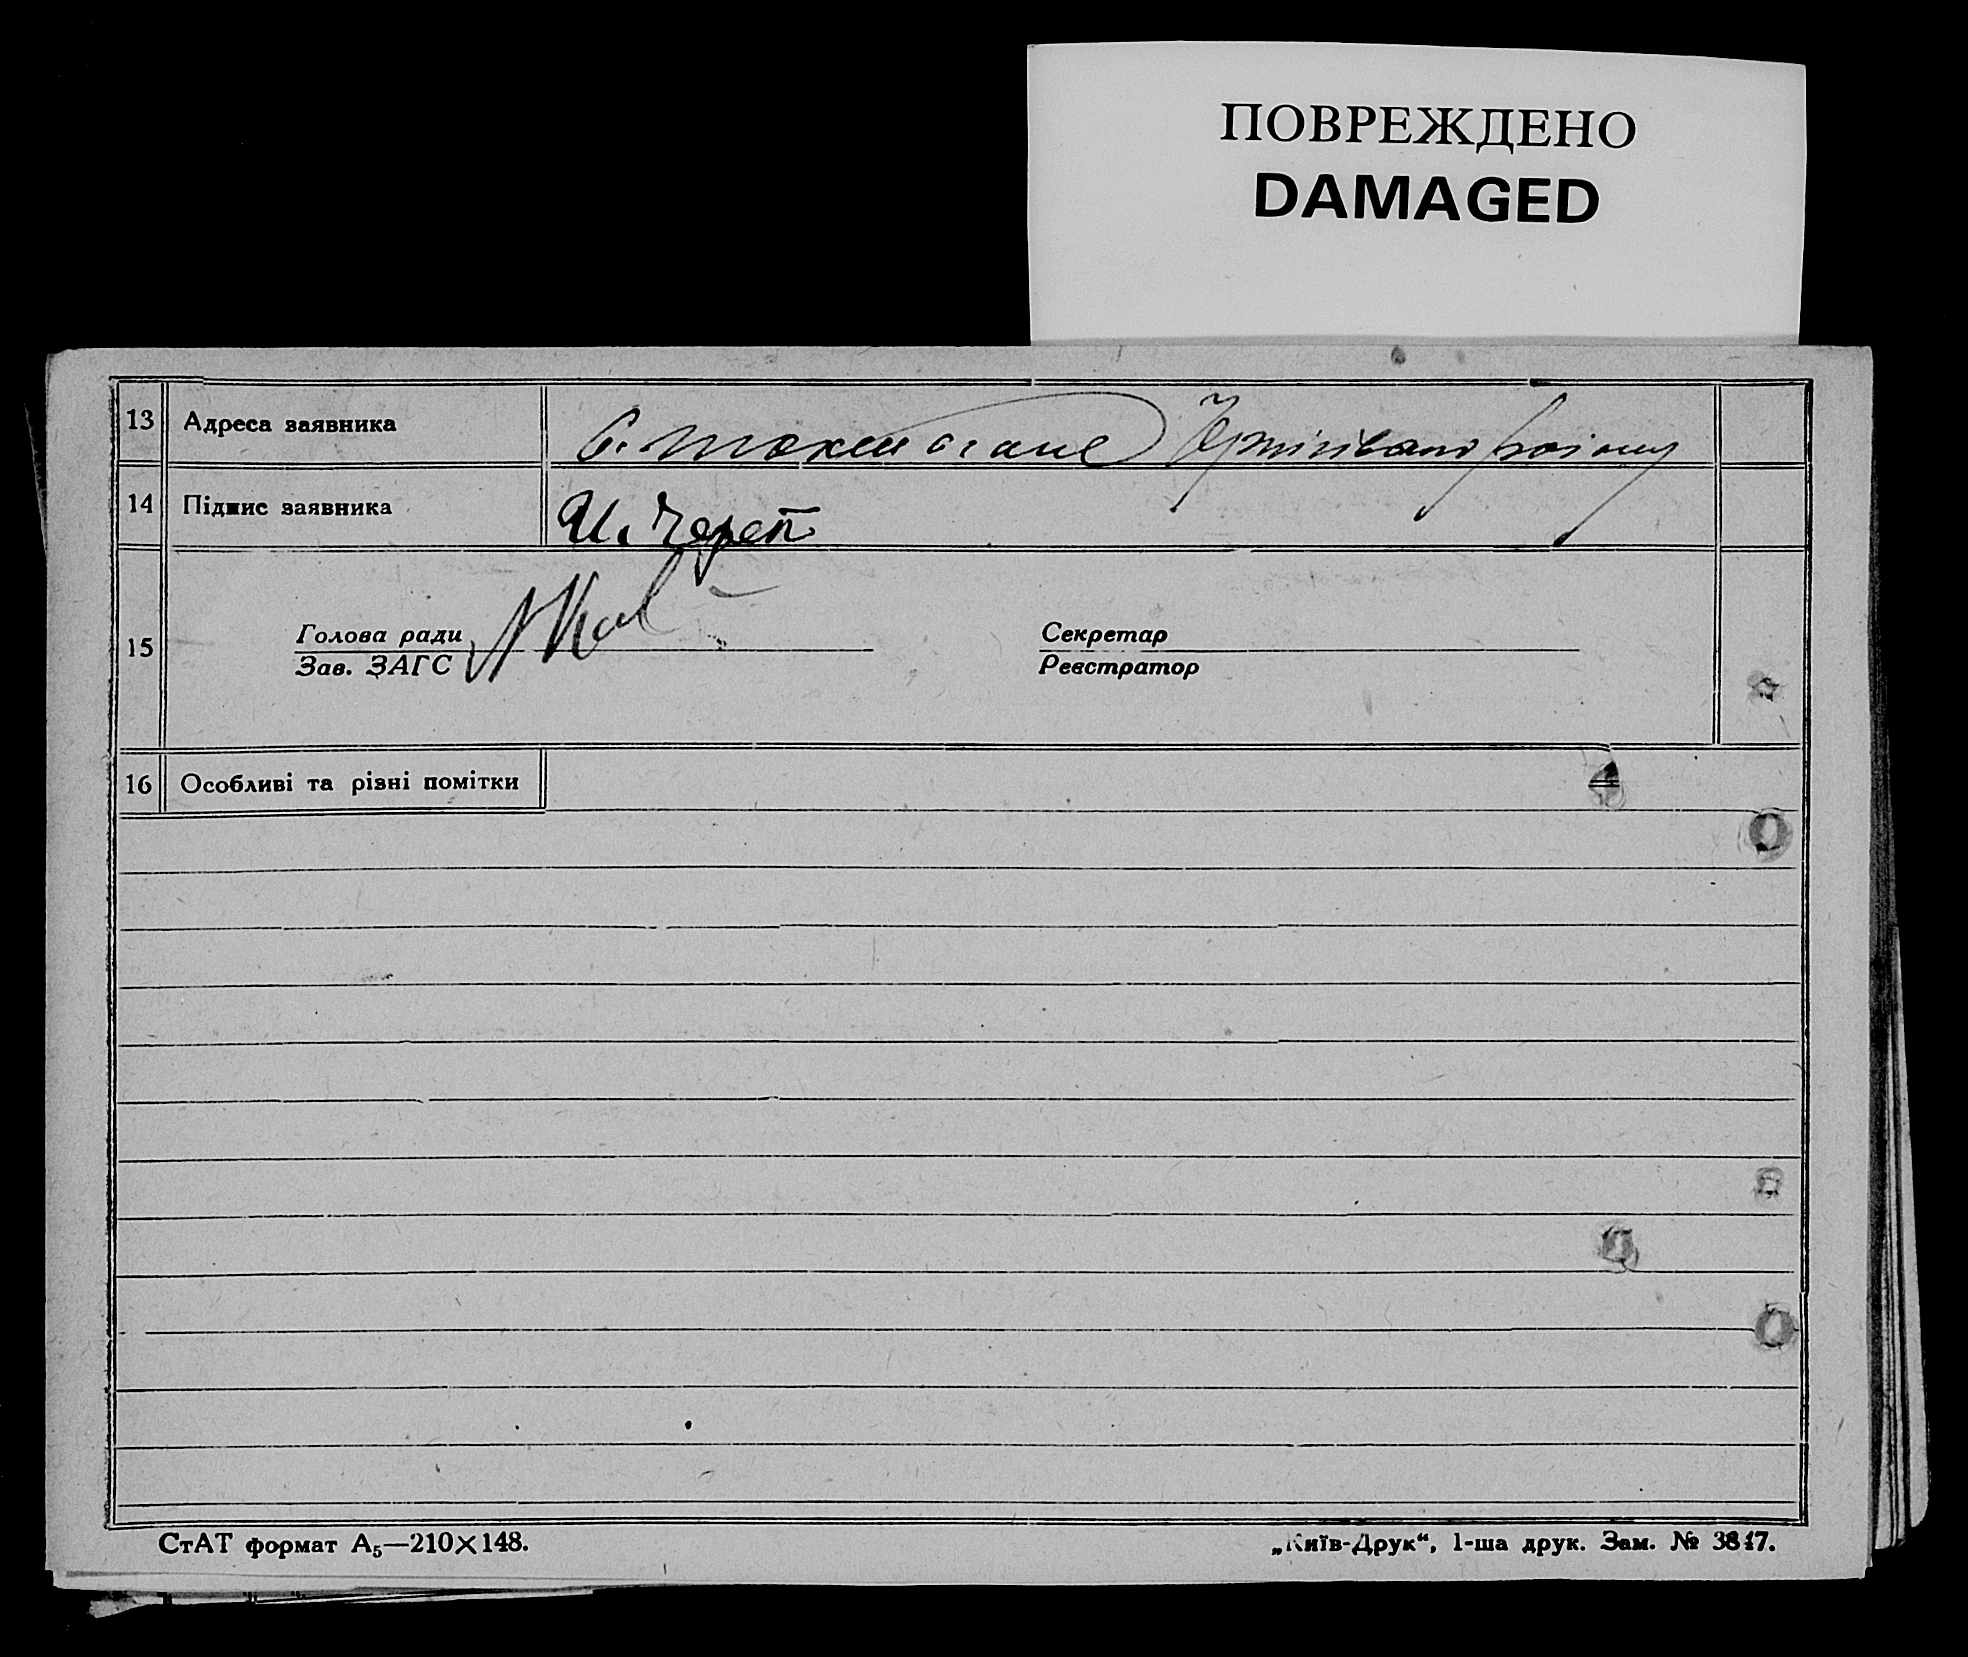 ПОВРЕЖДЕНО
DAMAGED
13 Адреса заявника с.
14 Підпис заявника И. Череп
15 Голова ради
Зав. ЗАГС
Секретар
Реєстратор
16 Особливі та різні помітки
СтАТ формат А5—210×148.
„Київ-Друк“, 1-ша друк. Зам. № 3847.